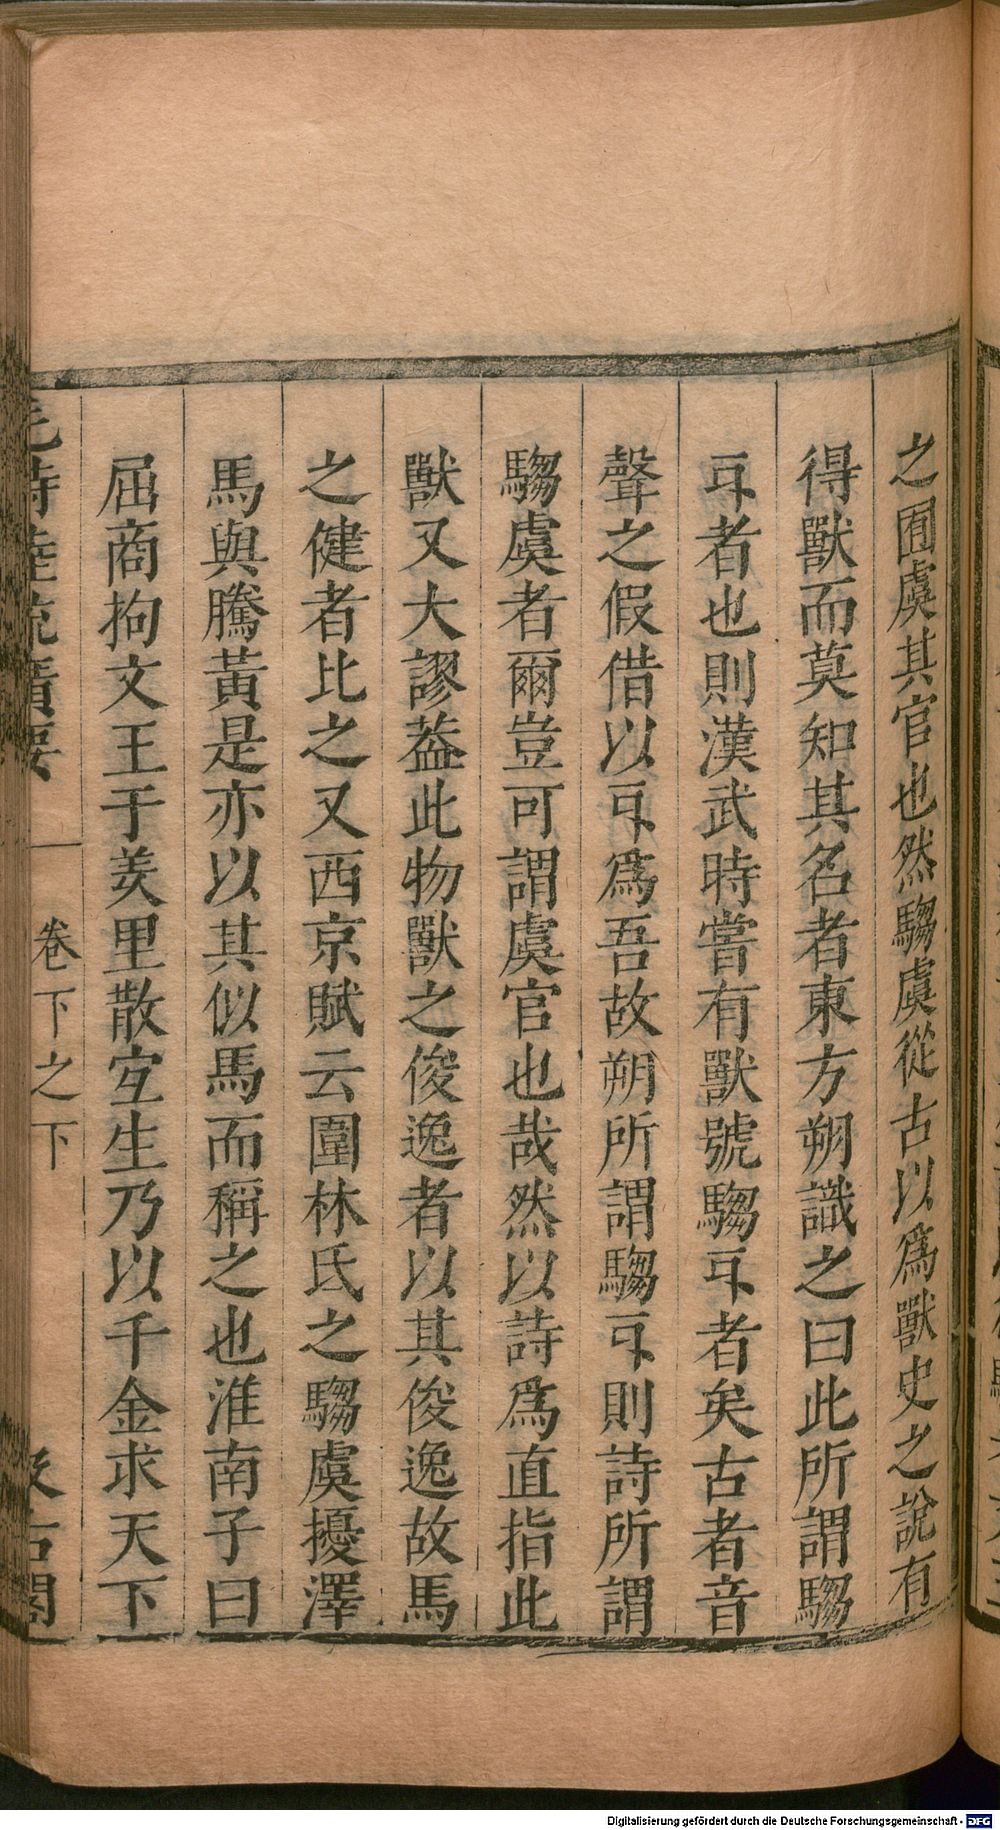 之囿虞其官也然騶虞從古以爲獸史之說有
得獸而莫知其名者東方朔識之曰此所謂騶
㸦者也則漢武時嘗有獸號騶㸦者矣古者音
聲之假借以㸦爲吾故朔所謂騶㸦則詩所謂
騶虞者爾豈可謂虞官也哉然以詩爲直指此
獸又大謬葢此物獸之俊逸者以其俊逸故馬
之健者比之又西京賦云圍林氏之騶虞擾澤
馬與騰黃是亦以其似馬而稱之也淮南子曰
屈商拘文王于羑里散宜生乃以千金求天下
毛詩陸疏廣要
卷下之下
汲古閣
Digitalisierung gefördert durch die Deutsche Forschungsgemeinschaft - DFG